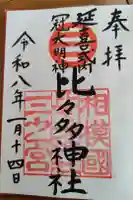 奉拝
延喜式内
冠大明神
比々多神社
令和八年一月十四日
相模國
三之宮